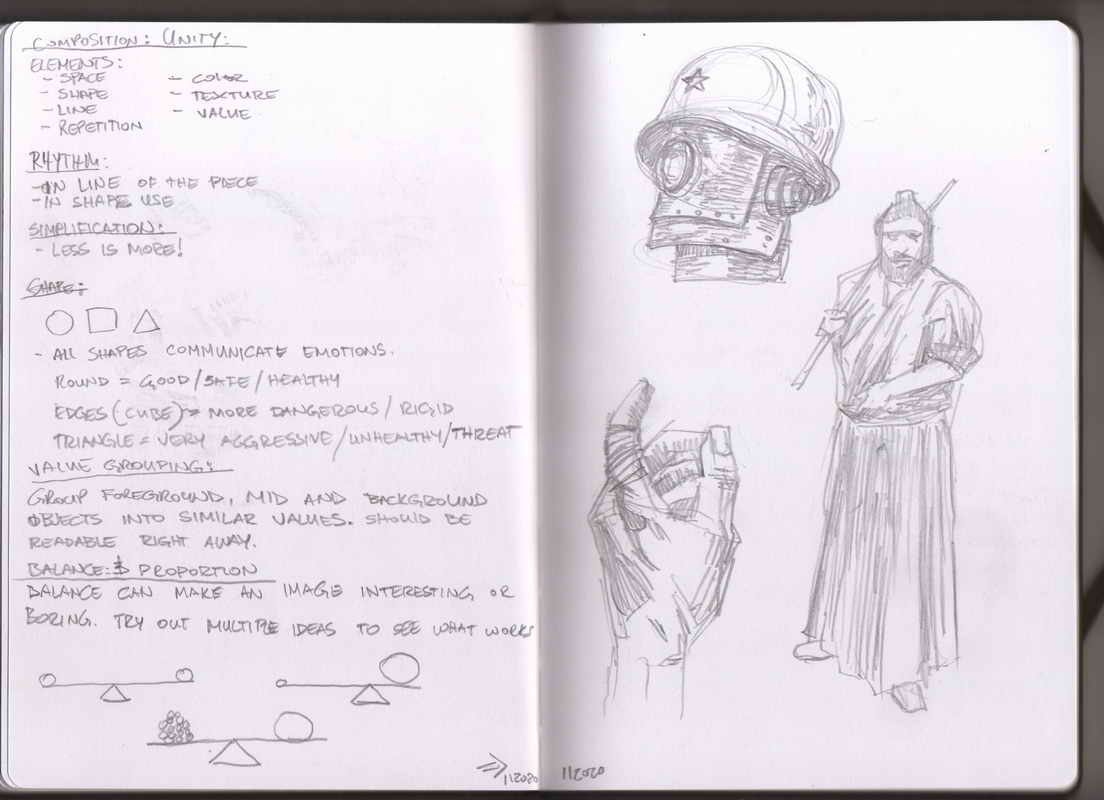 COMPOSITION: UNITY:
ELEMENTS:
- SPACE - COLOR
- SHAPE - TEXTURE
- LINE - VALUE
- REPETITION
RHYTHM:
- IN LINE OF THE PIECE
- IN SHAPE USE
SIMPLIFICATION:
- LESS IS MORE!
SHAPE:
- ALL SHAPES COMMUNICATE EMOTIONS.
ROUND = GOOD/SAFE/HEALTHY
EDGES (CUBE) = MORE DANGEROUS/RIGID
TRIANGLE = VERY AGGRESSIVE/UNHEALTHY/THREAT
VALUE GROUPING:
GROUP FOREGROUND, MID AND BACKGROUND
OBJECTS INTO SIMILAR VALUES. SHOULD BE
READABLE RIGHT AWAY.
BALANCE: & PROPORTION
BALANCE CAN MAKE AN IMAGE INTERESTING OR
BORING. TRY OUT MULTIPLE IDEAS TO SEE WHAT WORKS
112020
112020